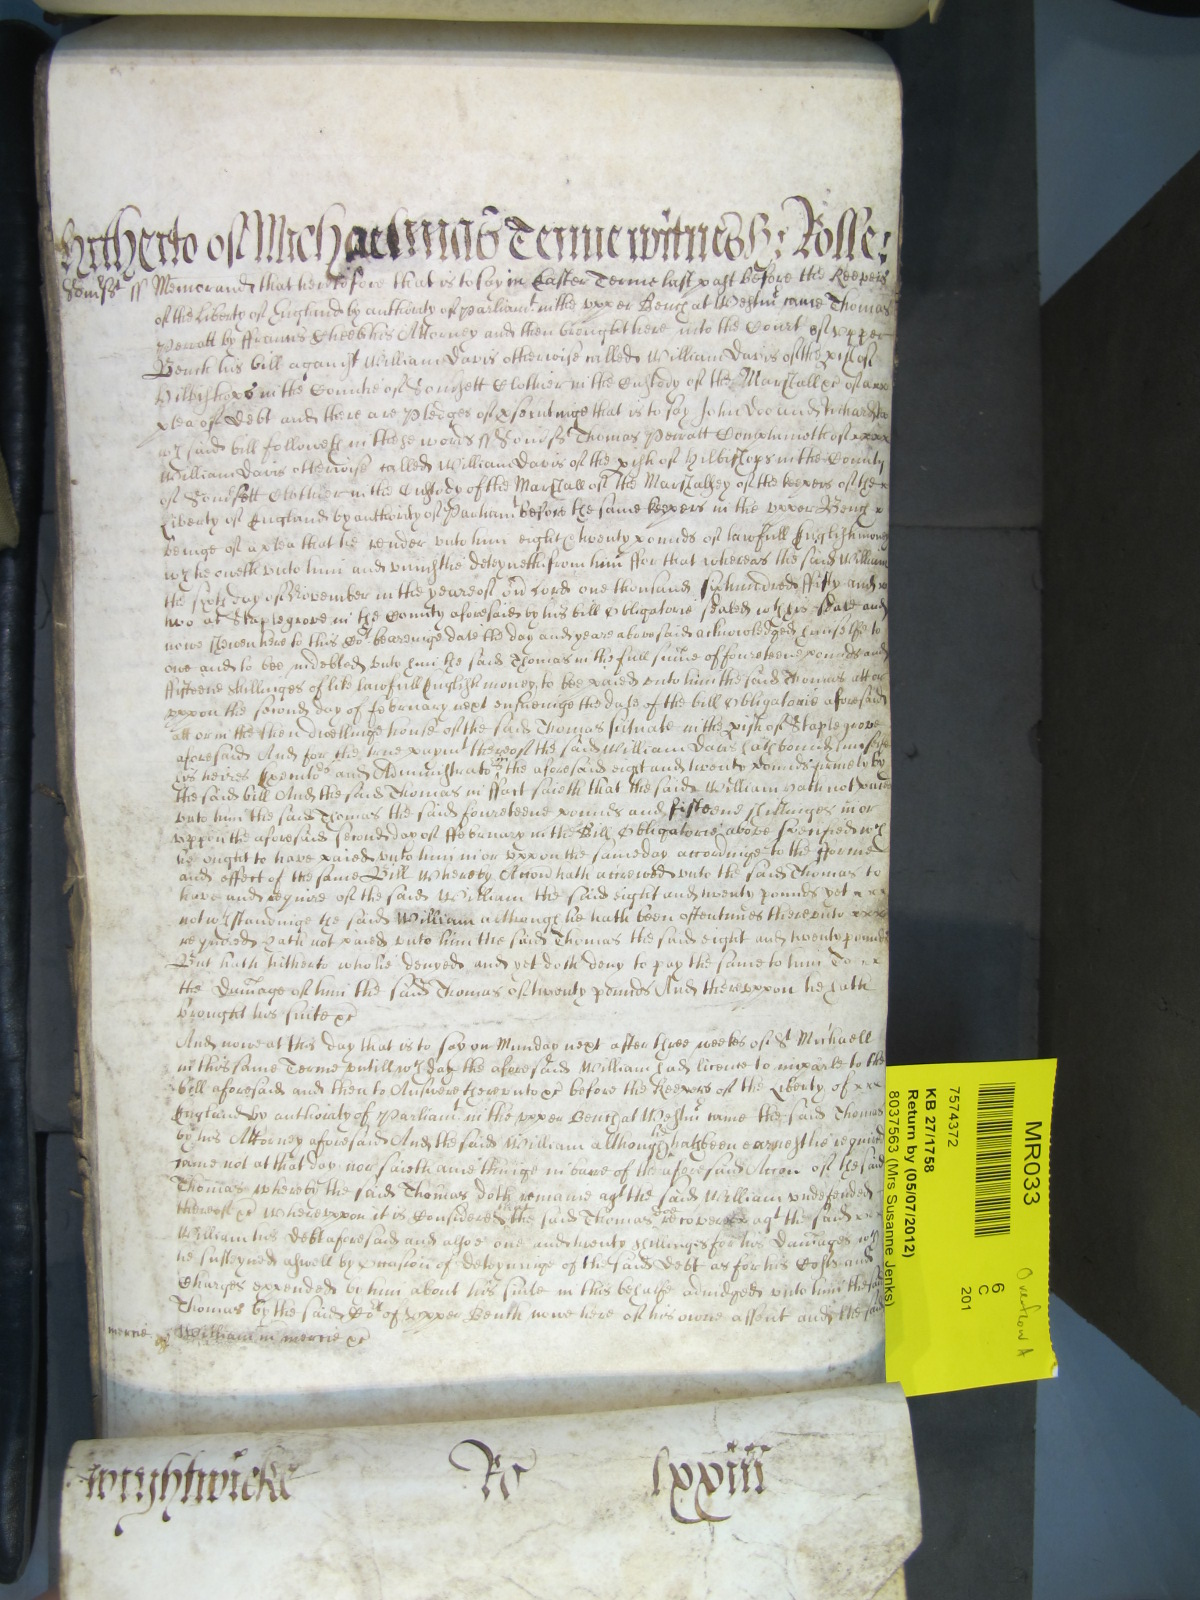 hitherto of Michaelmas Terme witnesh: Rolle:
Somst ss Memorand that heretofore that is to say in Easter Terme last past before the Keepers
of the Liberty of England by authority of Parliamt in the vpper Bench at Westmr came Thomas
Perratt by ffrancis Cheeke his Attorney and then brought here into the Court of vpper
Bench his bill against William Davis otherwise called William Davis of the pish of
Hilbishops in the Countie of Somsett Clothier in the Custody of the Marshall &c of a xxx
plea of Debt and there are Pledges of psecutinge that is to say John Doe and Richard Roe
wch said bill followeth in these words ss Somst Thomas Perratt Complaineth of xxxx
William Davis otherwise called William Davis of the pish of Hilbishops in the County
of Somsett Clothier in the Custody of the Marshall of the Marshalsey of the keepers of the x
Liberty of England by authority of Parliamt before the same keepers in the vpper Bench x
beinge of a plea that he render vnto him eight & twenty pounds of lawfull English money
wch he oweth vnto him and vniustlie deteyneth from him ffor that whereas the said William
the sixth day of November in the yeare of or Lord one thousand sixhundred ffifty and x
two at Staplegrove in the County aforesaid by his bill Obligatorie sealed wth his seale and
nowe shewen here to this Cort bearinge date the day and yeare abovesaid acknowledged himselfe to
owe and to bee indebted vnto him the said Thomas in the full sume of foureteene pounds and
ffifteene shillinges of like lawfull English money to bee paied vnto him the said Thomas att or
vppon the second day of February next ensueinge the date of the bill Obligatorie aforesaid
att or in the then dwellinge house of the said Thomas situate in the pish of Staplegrove
aforesaid And for the true paymt thereof the said William Davis hath bound himselfe
his heires Executors and Administrators in the aforesaid eight and twenty pounds firmely by
the said bill And the said Thomas in ffact saieth that the said William hath not paied
vnto him the said Thomas the said foureteene pounds and fifteene shillinges in or
vppon the aforesaid second day of ffebruary in the Bill Obligatorie above specified wch
he ought to have paied vnto him in or vppon the same day accordinge to the fforme
and effect of the same Bill Whereby Accon hath accrewed vnto the said Thomas to
have and require of the said William the said eight and twenty pounds yet x xx
notwthstandinge the said William although he hath been oftentimes therevnto xxx
required hath not paied vnto him the said Thomas the said eight and twenty pounds
But hath hitherto wholie denyed and yet doth deny to pay the same to him To xx
the Damage of him the said Thomas of twenty pounds And therevppon he hath
brought his suite &c
And nowe at this day that is to say on Munday next after three weekes of St Michaell
in this same Terme vntill wch day the aforesaid William had licence to imparle to the
bill aforesaid and then to Answere therevnto &c before the Keepers of the Liberty of xxx
England by authority of Parliamt in the vpper Bench at Westmr came the said Thomas
by his Attorney aforesaid And the said William although he hath been earnestlie required
came not at that day nor saieth anie thinge in barre of the aforesaid Accon of the said
Thomas whereby the said Thomas doth remaine agt the said William vndefended
thereof &c Wherevppon it is Considered that the said Thomas doe recover agt the said xx
William his Debt aforesaid and alsoe one and twenty shillinges for his Damages wch
he susteyned aswell by occasion of deteyninge of the said Debt as for his Costs and
Charges expended by him about his suite in this behalfe adiudged vnto him the said
Thomas by the said Cort of vpper Bench nowe here of his owne assent and the said
mercie William in mercie &c
wightwicke Ro lxxiii
MR033
7574372
KB 27/1758
Return by (05/07/2012)
8037563 (Mrs Susanne Jenks)
6
C
201
Overflow A